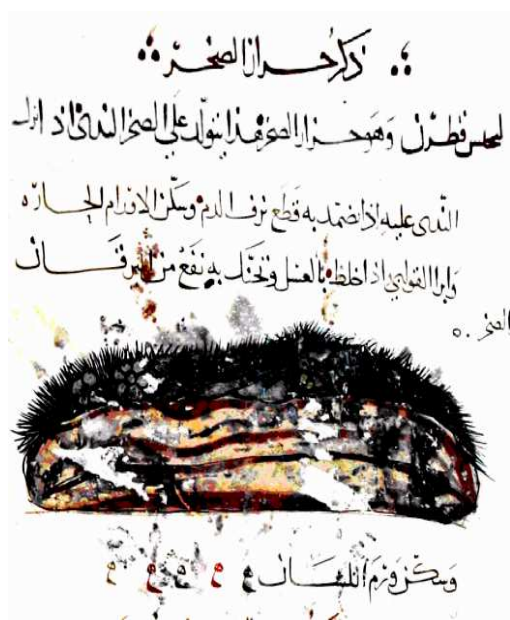 ذكر حزاز الصخر
لیحس قطرن وهو حزاز الصخر هذا يتولد على الصخر الندى اذ انزل
الندى عليه اذا تضمد به قطع نزف الدم وسكن الاورام الحاره
وابرا القوابي اذ اخلط بالعسل وتحنك به نفع من اليرقان
الصخر
وسكن ورم اللسان